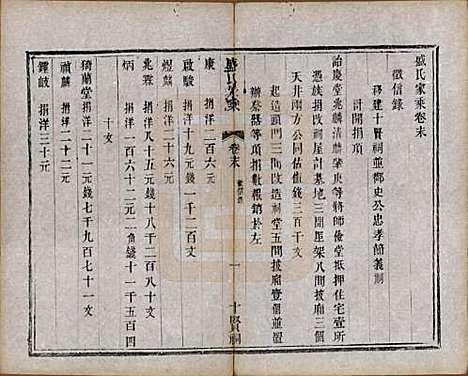 盛氏家乘卷末
徵信錄
移建十賢祠並鄮史公忠孝簡義祠
計開捐項
詒慶堂兆麟清麟肇庚等將師儉堂抵押住宅壹所
憑族捐改祠屋計基地三間厔架八間披廂三個
天井兩方公同估值錢三百千文
起造頭門三間改造祠堂五間披廂壹個並置
辦祭器等項捐數報銷於左
康 捐洋二百元
啟駿 捐洋十九元錢一千二百文
煜麟 捐洋二十六元
兆霖 捐洋八十五元錢十八千二百八十文
炳 捐洋一百六十二元二角錢十一千五百四
十文
猗蘭堂捐洋二十一元錢七千九百七十一文
禎麟 捐洋二十二元
鍾岐 捐洋三十元
盛氏家乘
卷末
徵信錄
一
十賢祠